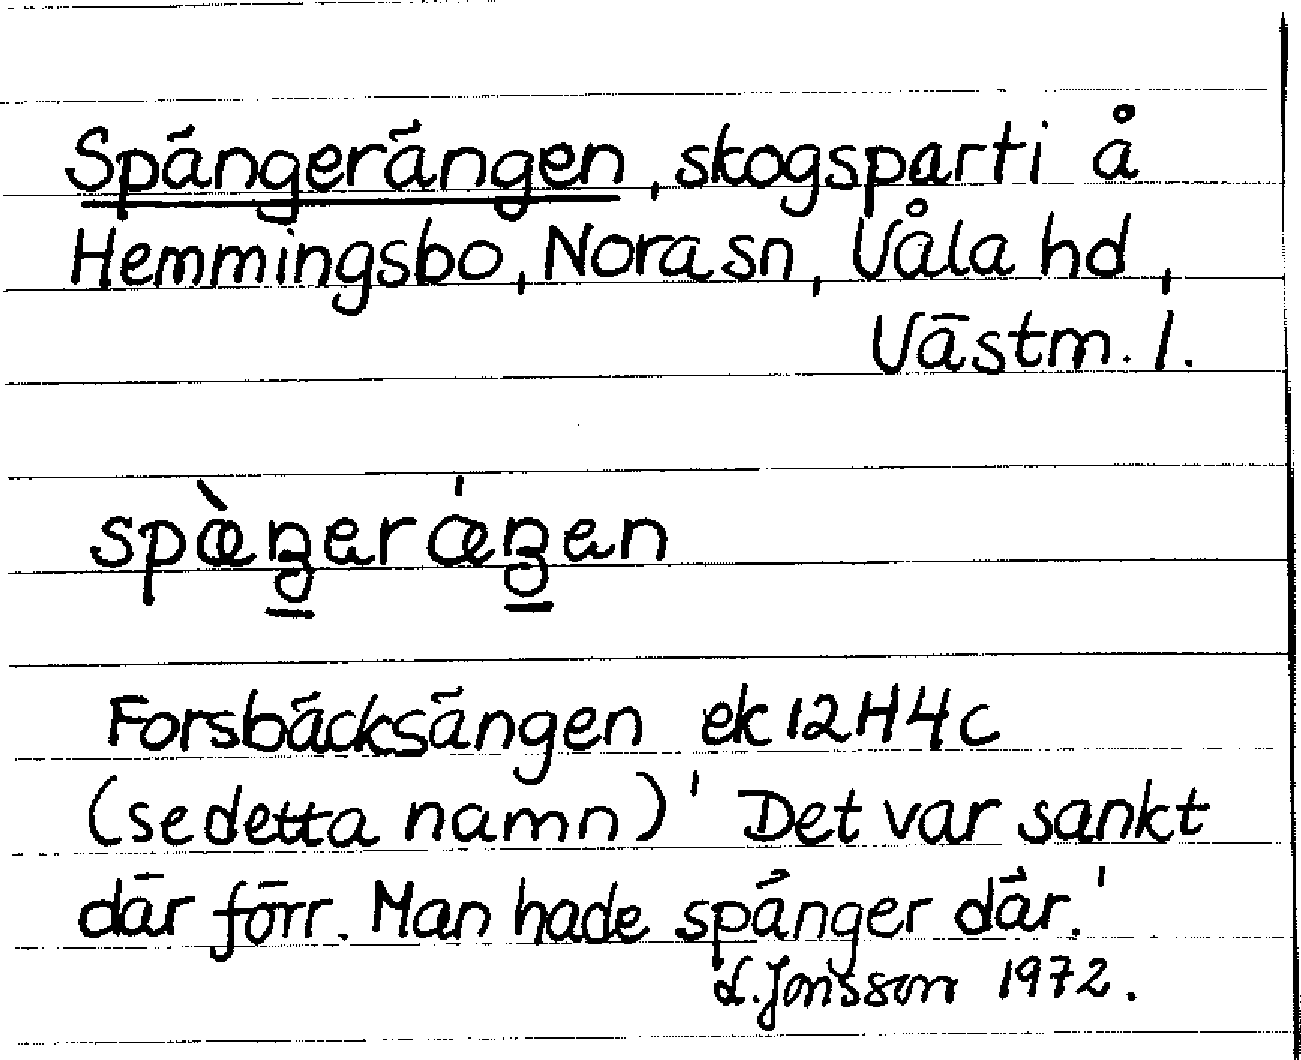 Spängerängen, skogsparti å
Hemmingsbo, Nora sn, Våla hd,
Västm. l.
spæ̀ŋerǽŋen
Forsbäcksängen ek 12H4c
(se detta namn) 'Det var sankt
där förr. Man hade spänger där.'
L. Jonsson 1972.